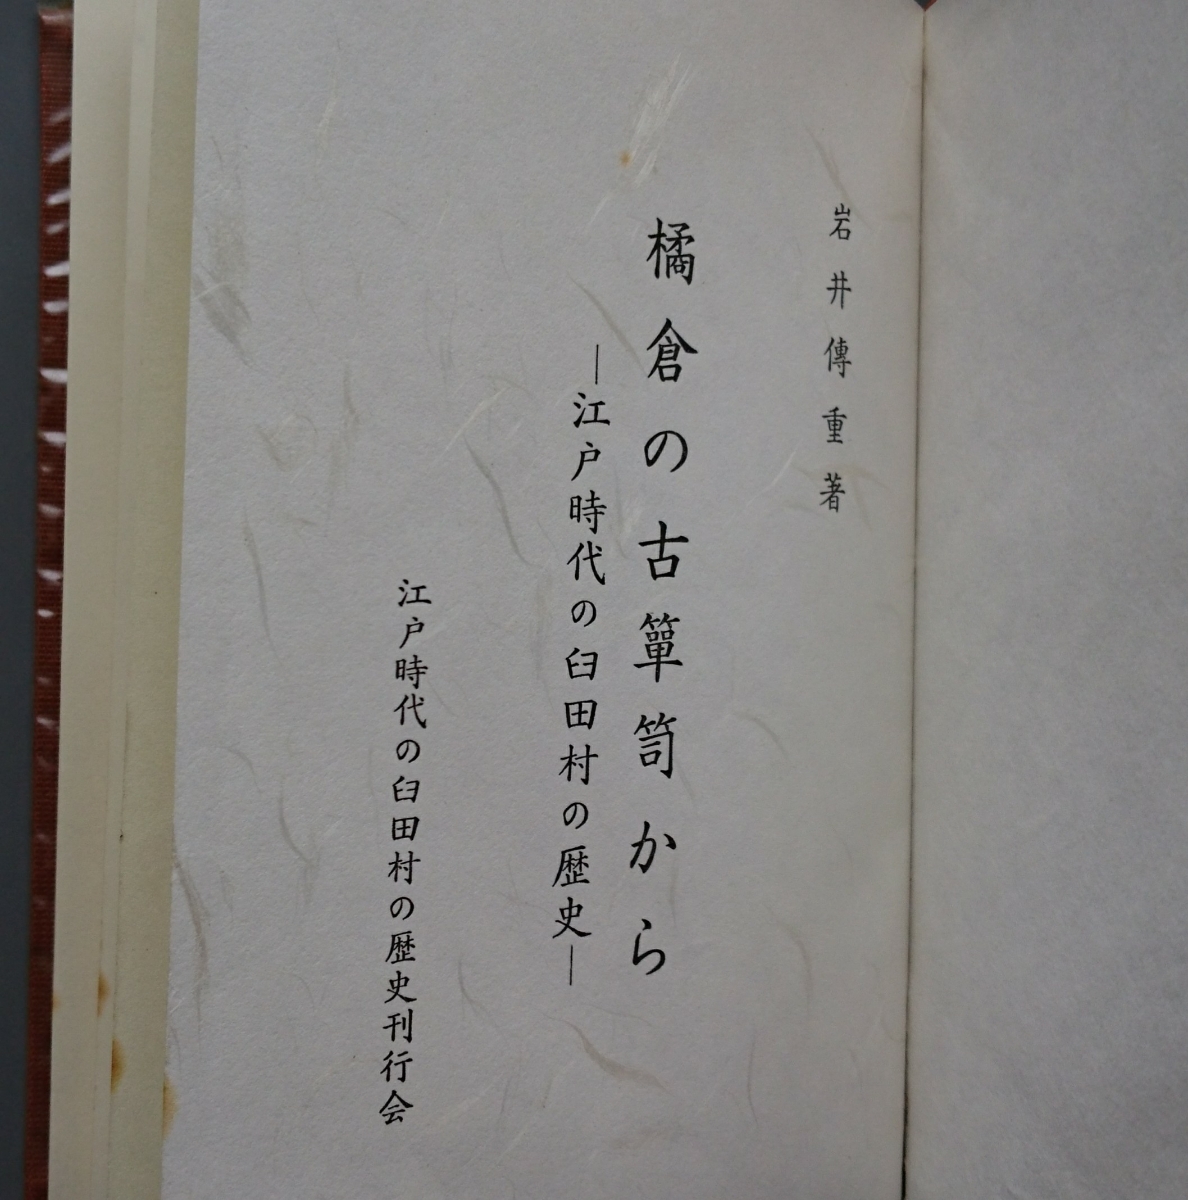 岩井傳重著
橘倉の古簞笥から
―江戸時代の臼田村の歴史―
江戸時代の臼田村の歴史刊行会